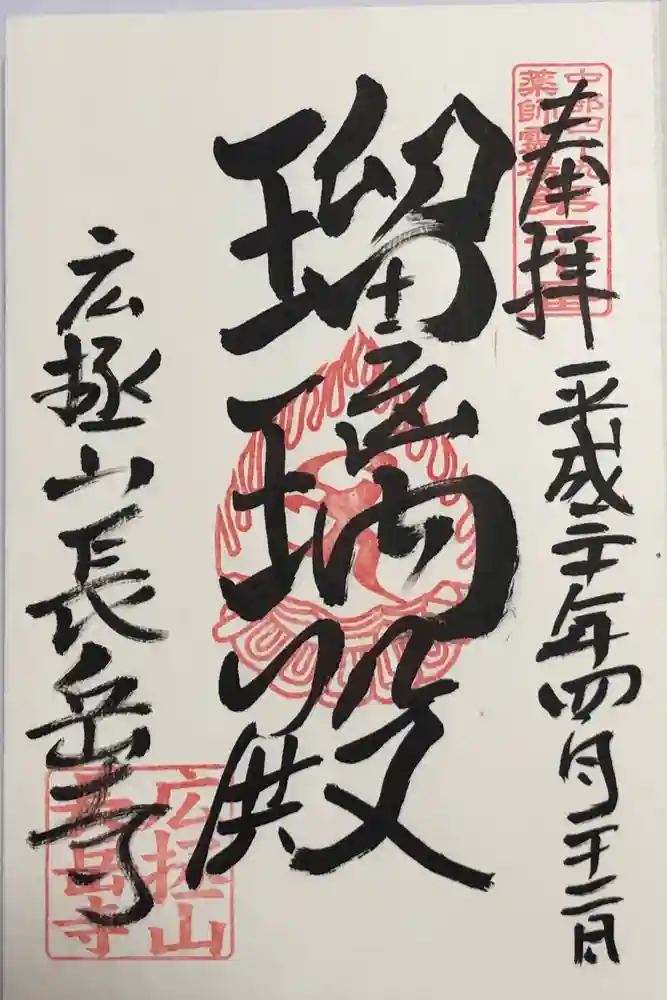 奉拝
平成三十年四月二十二日
瑠璃殿
広拯山長岳寺
中部四十九
薬師霊場
広拯山
長岳寺